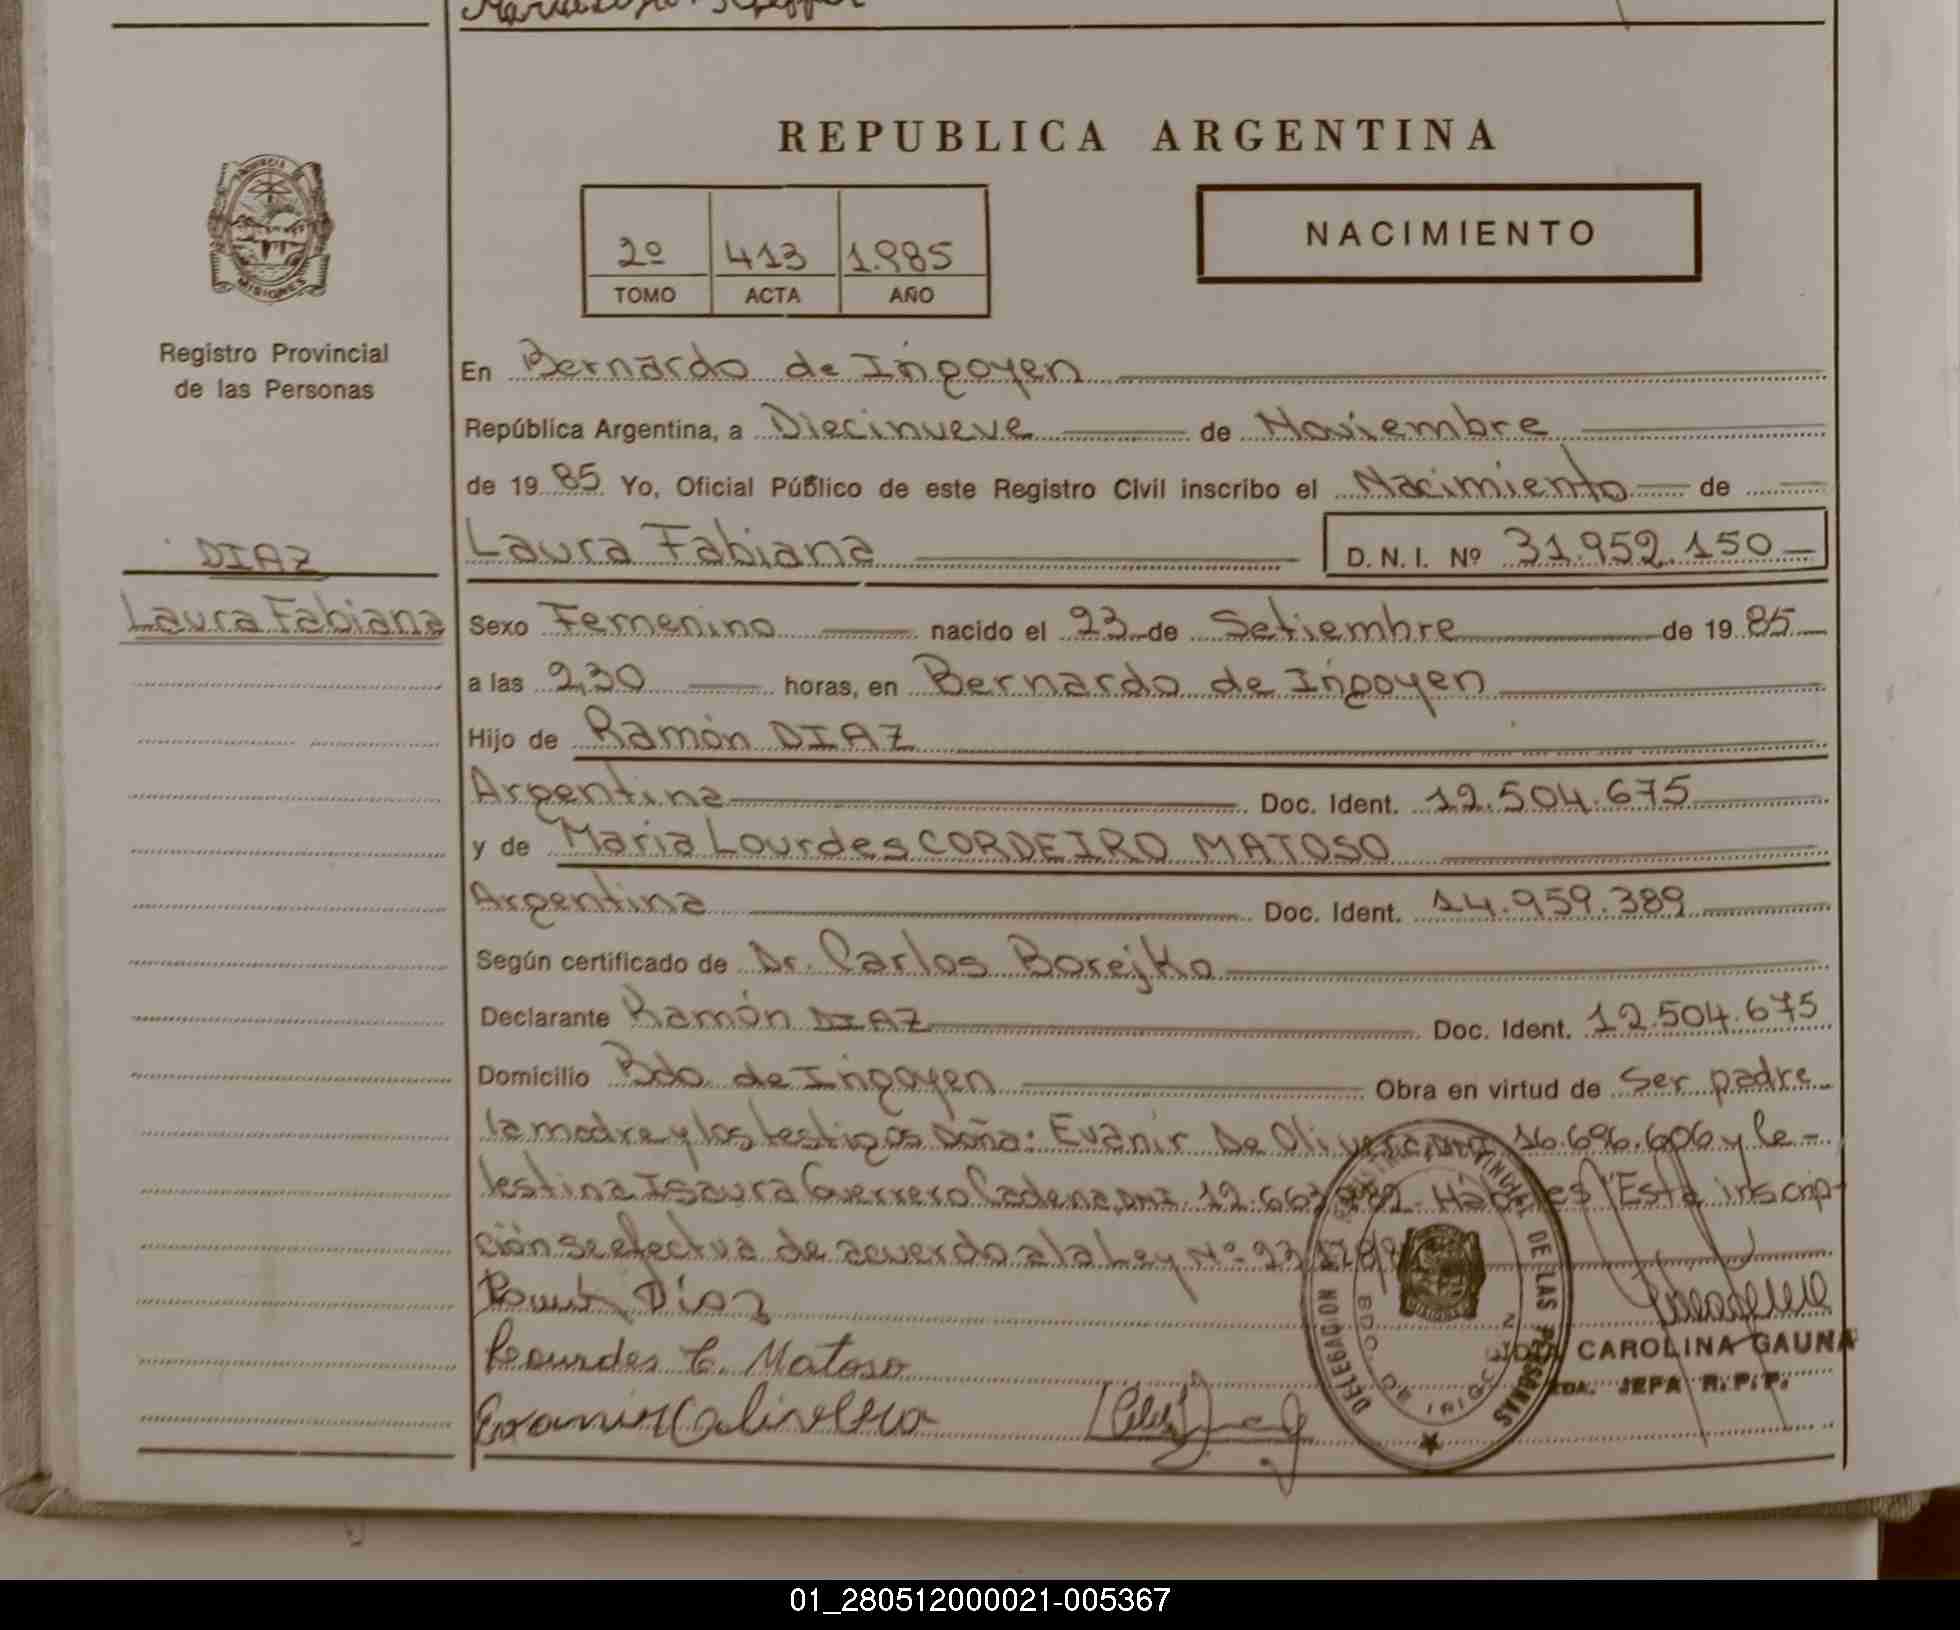 REPUBLICA ARGENTINA
2º 413 1.985
TOMO ACTA AÑO
NACIMIENTO
PROVINCIA
MISIONES
Registro Provincial
de las Personas
DIAZ
Laura Fabiana
En Bernardo de Irigoyen
República Argentina, a Diecinueve de Noviembre
de 19 85 Yo, Oficial Público de este Registro Civil inscribo el Nacimiento de
Laura Fabiana D. N. I. Nº 31.952.150
Sexo Femenino nacido el 23 de Setiembre de 19 85
a las 2,30 horas, en Bernardo de Irigoyen
Hijo de Ramón DIAZ
Argentina Doc. Ident. 12.504.675
y de Maria Lourdes CORDEIRO MATOSO
Argentina Doc. Ident. 14.959.389
Según certificado de Dr. Carlos Borejko
Declarante Ramón DIAZ Doc. Ident. 12.504.675
Domicilio Bdo de Irigoyen Obra en virtud de Ser padre
la madre y los testigos Doña: Evanir De Olivera, DNI 16.696.606 y Ce-
lestina Isaura Guerrero Cadena, DNI. 12.663. Hábiles "Esta inscrip-
ción se efectua de acuerdo a la Ley Nº
Díaz
Lourdes C. Matoso
Evanir Oliveira
DELEGACION REGISTRO PROVINCIAL DE LAS PERSONAS
BDO. DE IRIGOYEN
CAROLINA GAUNA
JEFA R.P.P.
01_280512000021-005367